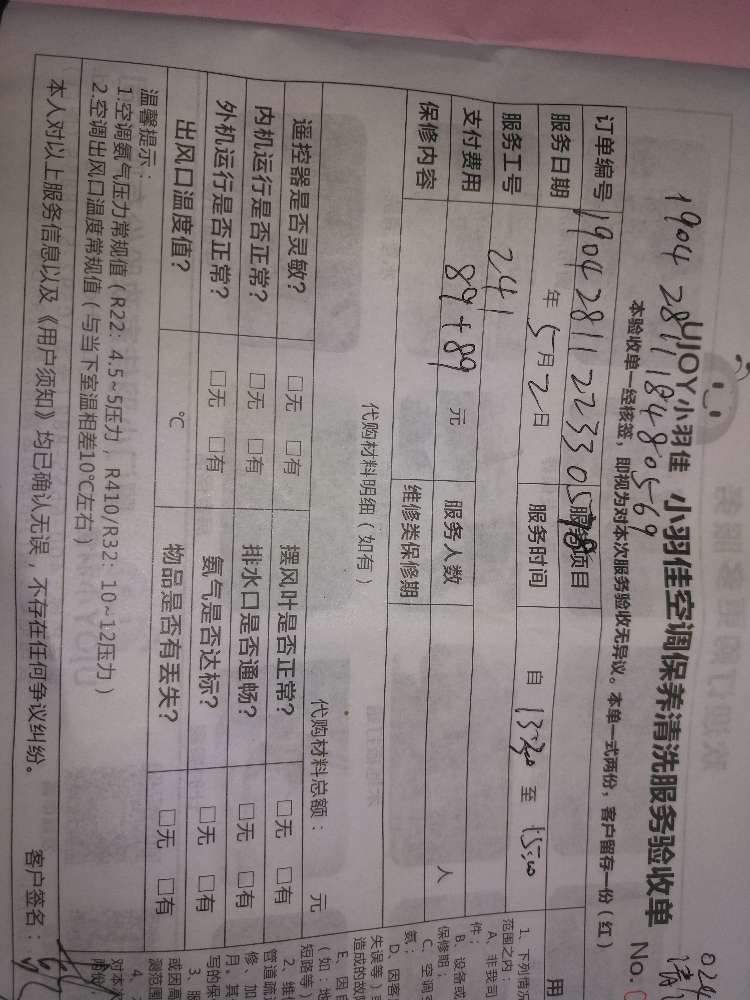 1904 2811 18480569
UJOY小羽佳 小羽佳空调保养清洗服务验收单 No.
本验收单一经核签，即视为对本次服务验收无异议。本单一式两份，客户留存一份（红）
订单编号 1904 2811 22330578 服务项目
服务日期 年 5月 2日 服务时间 自 13:30 至 15:00
服务工号 241
支付费用 89+89 元 服务人数 人
保修内容 维修类保修期
代购材料明细（如有） 代购材料总额： 元
遥控器是否灵敏？ □无 □有 摆风叶是否正常？ □无 □有
内机运行是否正常？ □无 □有 排水口是否通畅？ □无 □有
外机运行是否正常？ □无 □有 氨气是否达标？ □无 □有
出风口温度值？ ℃ 物品是否有丢失？ □无 □有
温馨提示：
1.空调氨气压力常规值（R22：4.5~5压力，R410/R32：10~12压力）
2.空调出风口温度常规值（与当下室温相差10℃左右）
本人对以上服务信息以及《用户须知》均已确认无误，不存在任何争议纠纷。 客户签名：
用
1、下列情况
范围之内：
A、非我司
件；
B、设备或
保修期；
C、空调
氨；
D、因客
失误等）
造成的故障
E、因
（如：地
短路等）
2、维
管道疏
修、加
月。其
写的保
3、服
或因高
测范围
4、
对本次
两份